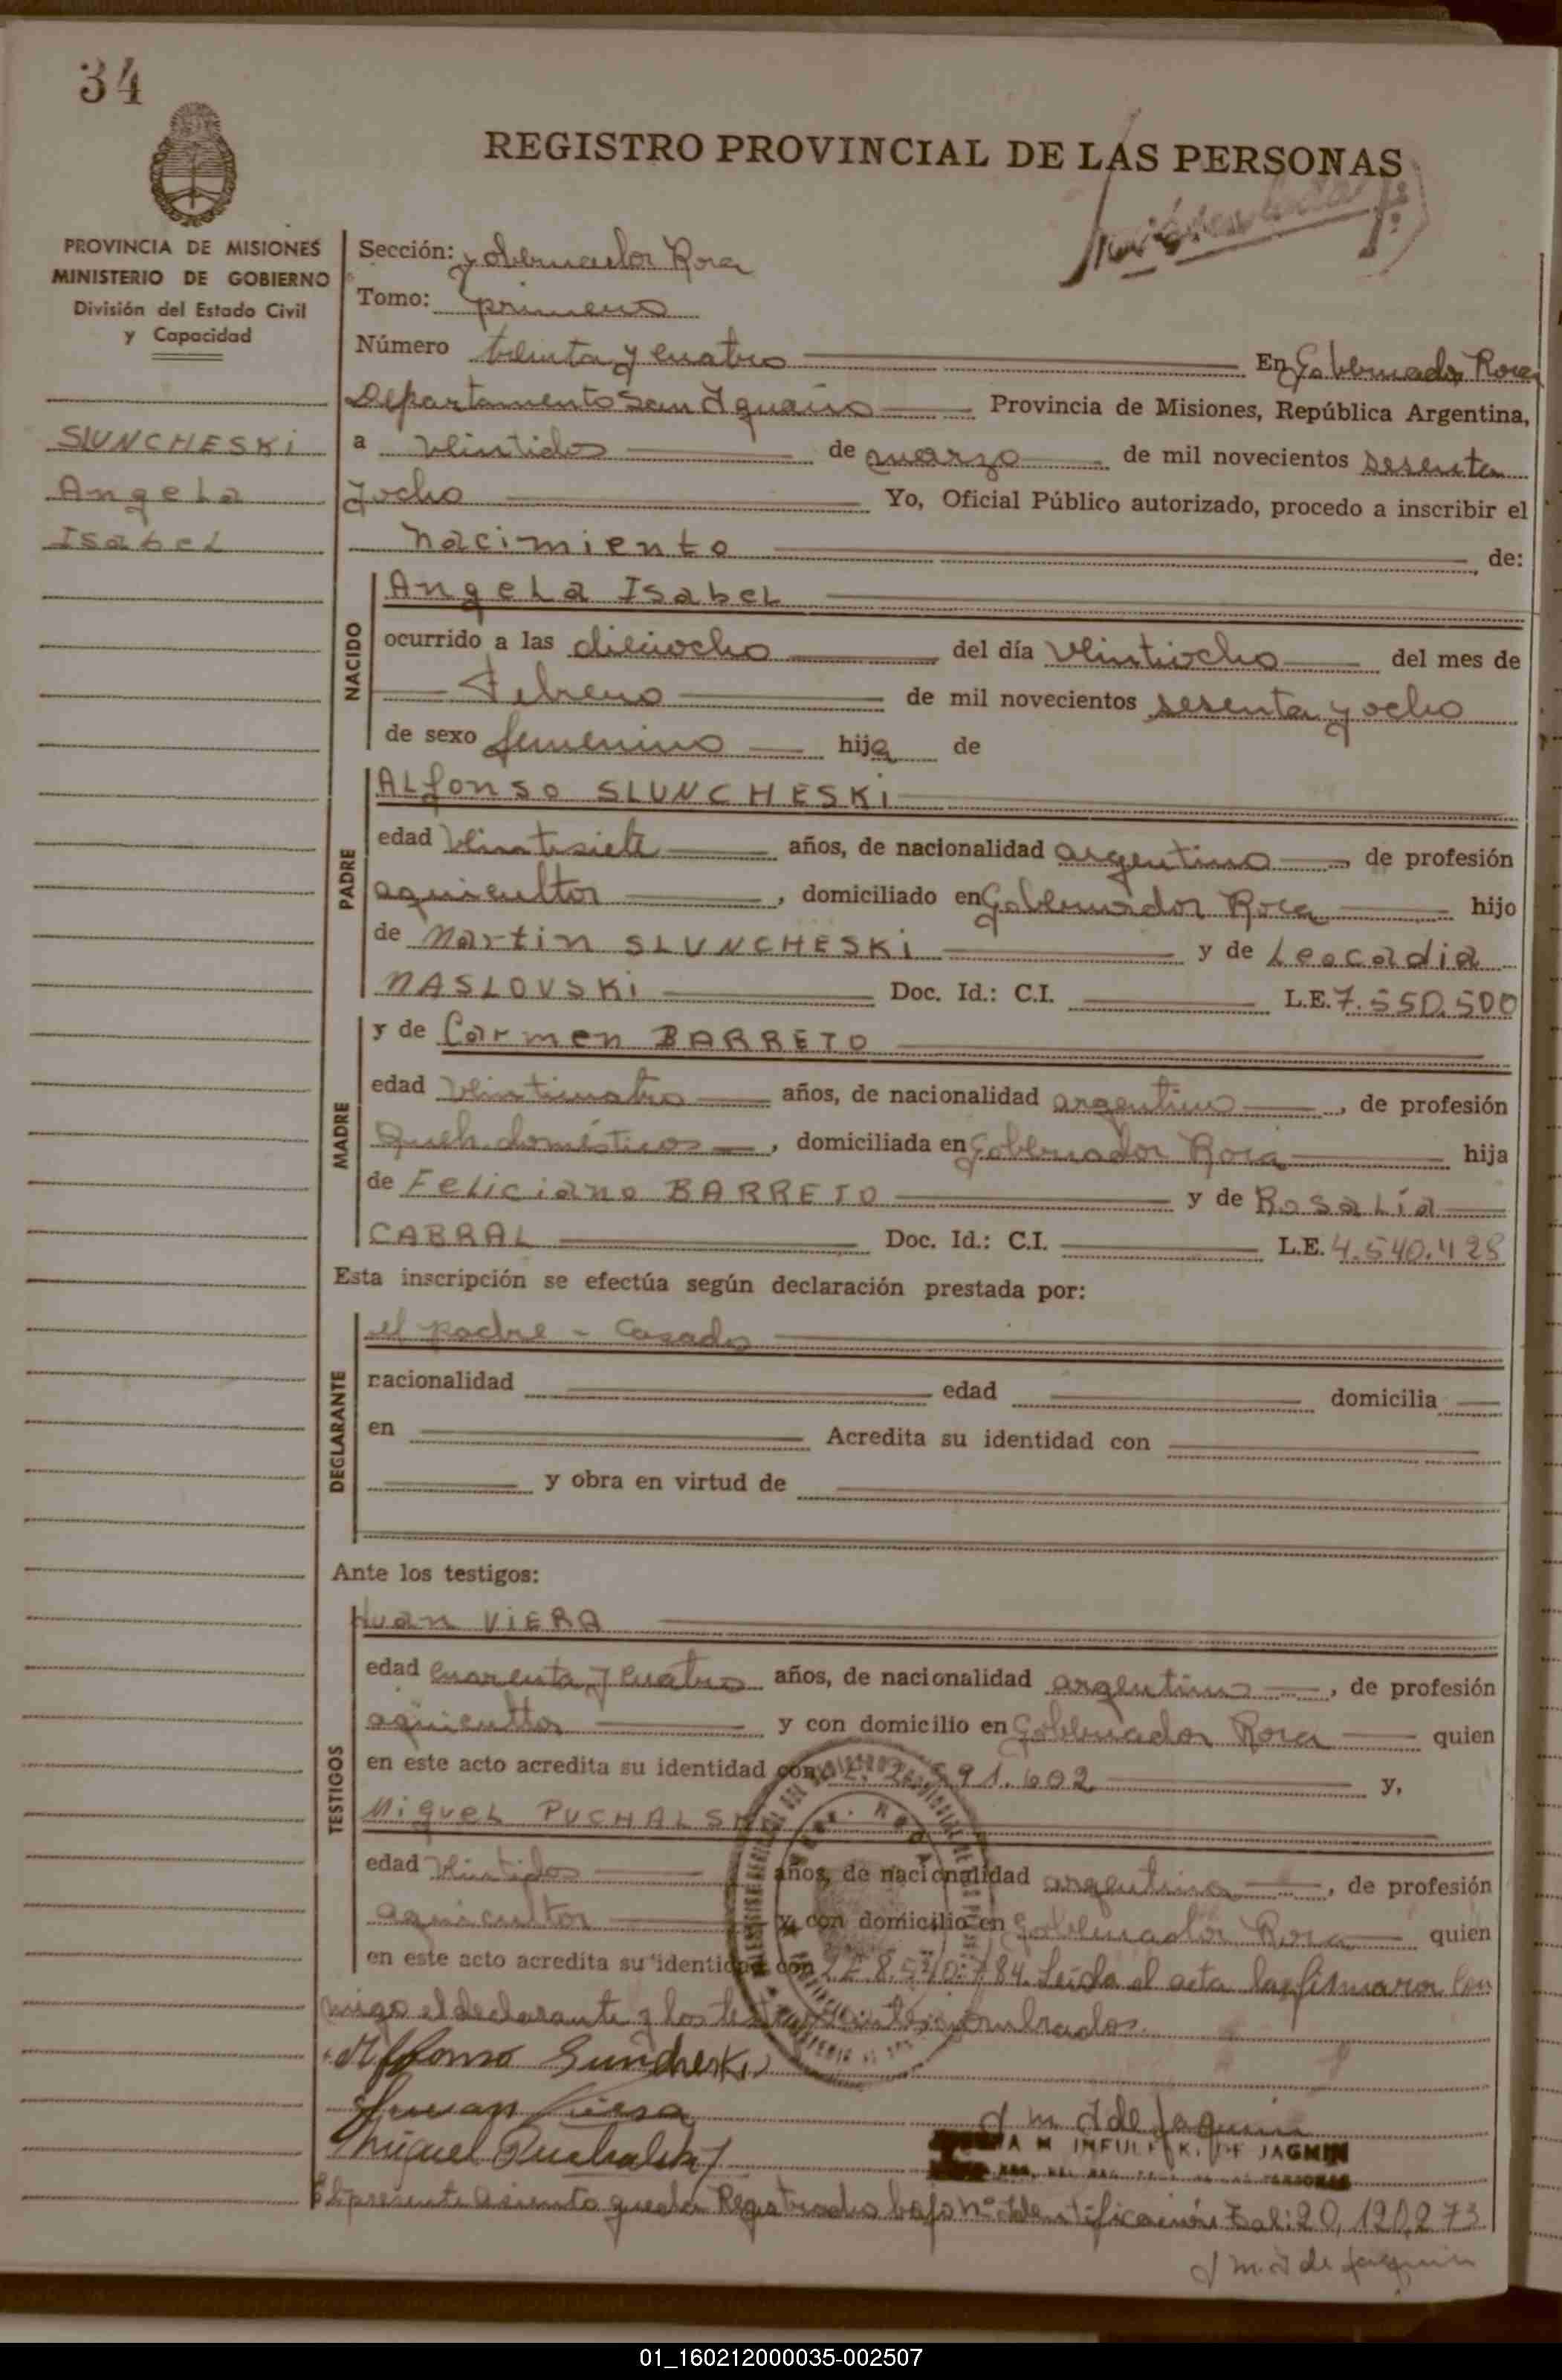 34
REGISTRO PROVINCIAL DE LAS PERSONAS
PROVINCIA DE MISIONES
MINISTERIO DE GOBIERNO
División del Estado Civil
y Capacidad
SLUNCHESKI
Angela
Isabel
Sección: gobernador Roca
Tomo: primero
Número treinta y cuatro En Gobernador Roca
Departamento San Ignacio Provincia de Misiones, República Argentina,
a veintidos de marzo de mil novecientos sesenta
y ocho Yo, Oficial Público autorizado, procedo a inscribir el
nacimiento de:
NACIDO
Angela Isabel
ocurrido a las dieciocho del día veintiocho del mes de
Febrero de mil novecientos sesenta y ocho
de sexo femenino hija de
PADRE
Alfonso SLUNCHESKI
edad veintisiete años, de nacionalidad argentino de profesión
agricultor, domiciliado en Gobernador Roca hijo
de Martin SLUNCHESKI y de Leocadia
MASLOVSKI Doc. Id.: C.I. L.E. 7.550.500
MADRE
y de Carmen BARRETO
edad veinticuatro años, de nacionalidad argentina, de profesión
Queh. domésticos, domiciliada en Gobernador Roca hija
de Feliciano BARRETO y de Rosalía
CABRAL Doc. Id.: C.I. L.E. 4.540.428
Esta inscripción se efectúa según declaración prestada por:
DECLARANTE
el padre - Casado
nacionalidad edad domicilia
en Acredita su identidad con
y obra en virtud de
Ante los testigos:
TESTIGOS
Juan VIERA
edad cuarenta y cuatro años, de nacionalidad argentino, de profesión
agricultor y con domicilio en Gobernador Roca quien
en este acto acredita su identidad con 591.602 y,
Miguel PUCHALSKI
edad veintidos años, de nacionalidad argentino, de profesión
agricultor y con domicilio en Gobernador Roca quien
en este acto acredita su identidad con LE 8.540.784. Leida el acta la firmaron con
migo el declarante y los testigos nombrados.
Alfonso Suncheski
Juan Viera
Miguel Puchalski
J M I de Jagmin
M INFULE K. DE JAGMIN
El presente asiento queda Registrado bajo nº Identificación 20.120.273
J M. I de Jagmin
01_160212000035-002507